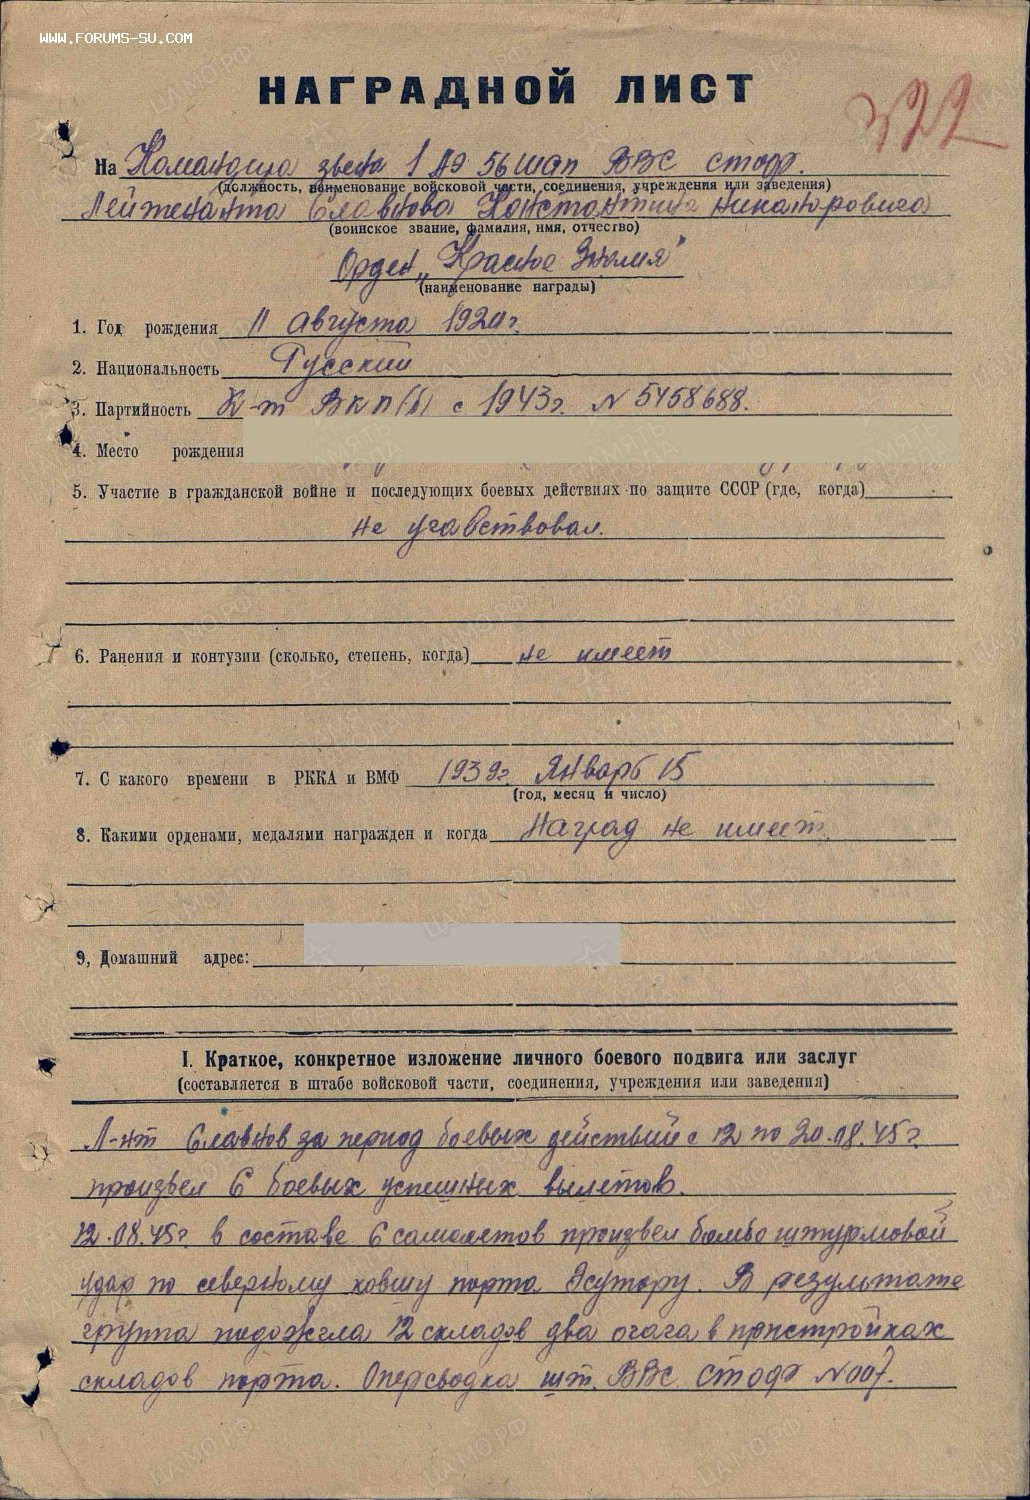 WWW.FORUMS-SU.COM
НАГРАДНОЙ ЛИСТ
322
На Командира звена 1 АЭ 56 шап ВВС СТОФ.
(должность, наименование войсковой части, соединения, учреждения или заведения)
Лейтенанта Славнова Константина Никаноровича
(воинское звание, фамилия, имя, отчество)
Орден „Красное Знамя"
(наименование награды)
1. Год рождения 11 августа 1920г.
2. Национальность Русский
3. Партийность К-т ВКП(б) с 1943г. № 5458688.
4. Место рождения
5. Участие в гражданской войне и последующих боевых действиях по защите СССР (где, когда)
не участвовал.
6. Ранения и контузии (сколько, степень, когда) не имеет
7. С какого времени в РККА и ВМФ 1939г. Январь 15
(год, месяц и число)
8. Какими орденами, медалями награжден и когда Наград не имеет.
9, Домашний адрес:
I. Краткое, конкретное изложение личного боевого подвига или заслуг
(составляется в штабе войсковой части, соединения, учреждения или заведения)
Л-нт Славнов за период боевых действий с 12 по 20.08.45г.
произвел 6 боевых успешных вылетов.
12.08.45г в составе 6 самолетов произвел бомбо штурмовой
удар по северному ковшу порта Эсутору. В результате
группа подожгла 12 складов два очага в пристройках
складов порта. Оперсводка шт. ВВС СТОФ №007.